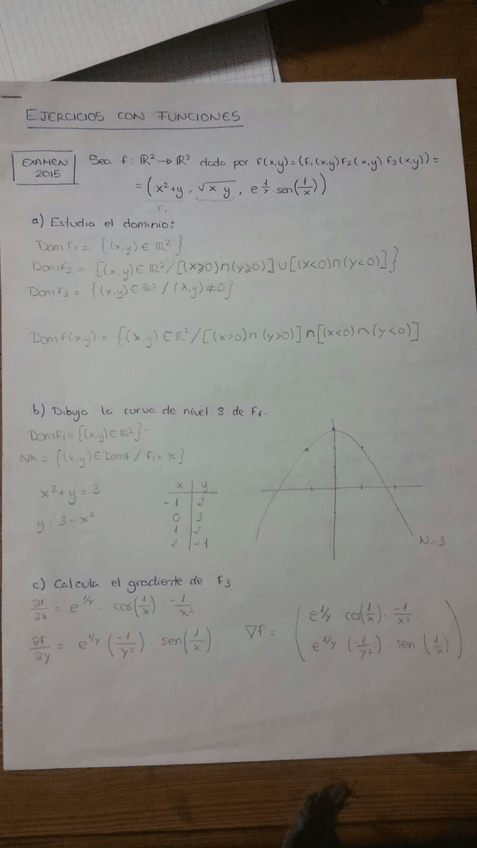 EJERCICIOS CON FUNCIONES
EXAMEN 2015
Sea f: ℝ²→ℝ³ dada por f(x,y)=(F₁(x,y) F₂(x,y) F₃(x,y))=
= (x²+y, √x y, e^(1/y) · sen(1/x))
F₁
a) Estudia el dominio:
Dom F₁ = {(x,y)∈ℝ²}
Dom F₂ = {(x,y)∈ℝ²/[(x≥0)∩(y≥0)]∪[(x<0)∩(y<0)]}
Dom F₃ = {(x,y)∈ℝ²/(x,y)≠0}
Dom F(x,y) = {(x,y)∈ℝ²/[(x>0)∩(y>0)]∩[(x<0)∩(y<0]
b) Dibuja la curva de nivel 3 de F₁.
Dom F₁ = {(x,y)∈ℝ²}
NK = {(x,y)∈Dom F / F₁ = K}
x²+y = 3
y = 3-x²
x | y
-1 | 2
0 | 3
1 | 2
2 | -1
N=3
c) Calcula el gradiente de F₃
∂f/∂x = e^(1/y) · cos(1/x) · -1/x²
∂f/∂y = e^(1/y) · (-1/y²) · sen(1/x)
∇f = (e^(1/y) · cos(1/x) · -1/x²
e^(1/y) · (-1/y²) · sen(1/x))